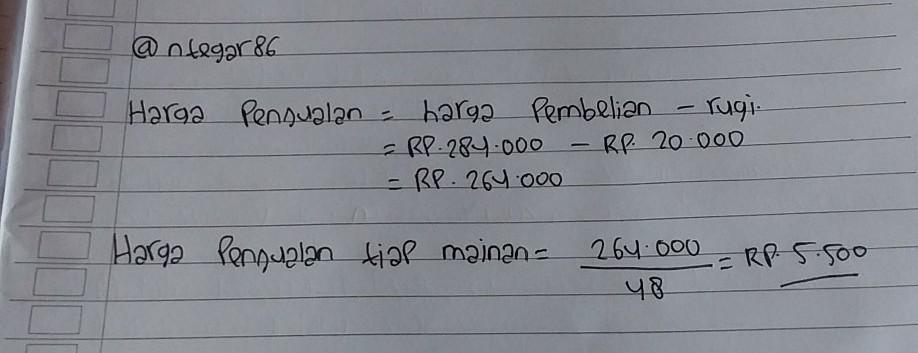 @ntegar86
Harga Penjualan = harga Pembelian - rugi.
= RP. 284.000 - RP. 20.000
= RP. 264.000
Harga Penjualan tiap mainan = 264.000 / 48 = RP. 5.500